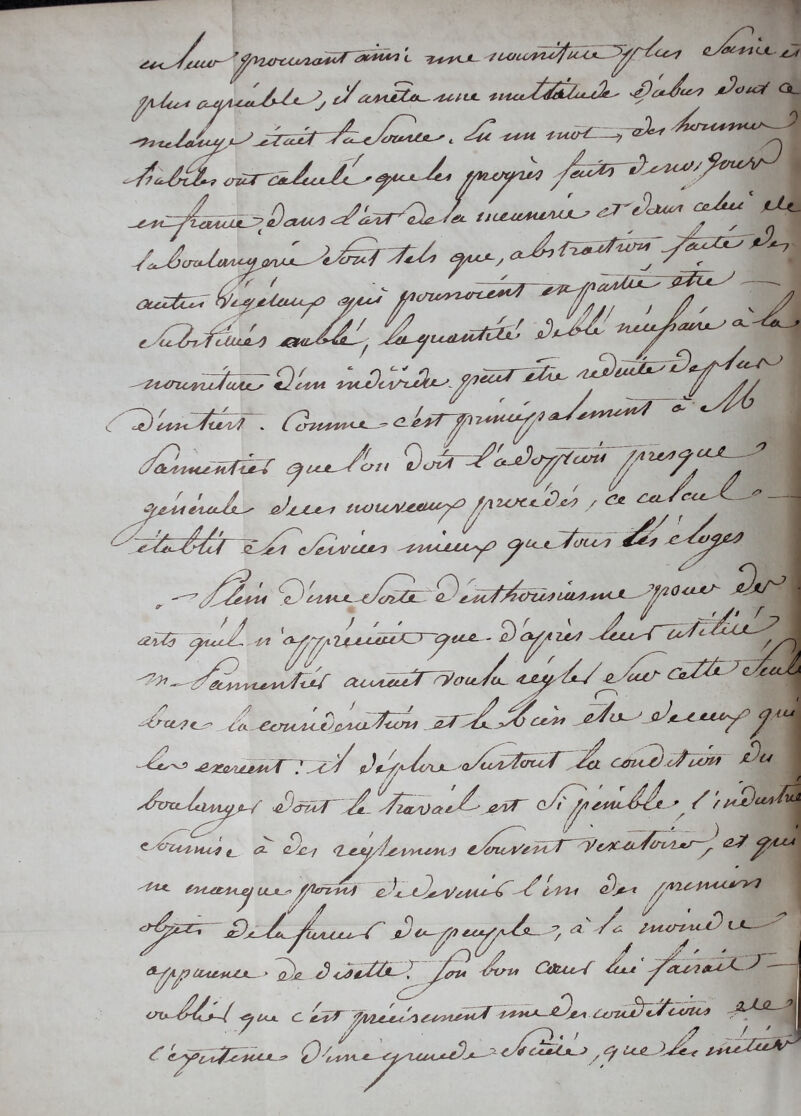 en leur procurant ainsi une nourriture plus saine et
plus agréable, il arrêta une multitude d'abus dont ce
mélange était la source. En un mot, des hommes
habiles ont calculé que les progrès faits de nos jours
en france, dans l'art de la meunerie et dans celui de
la boulangerie sont tels que, abstraction faite des
autres végétaux qui pourroient en partie être
substitués au blé, la quantité de blé nécessaire à la
nourriture d'un individu peut être reduite de plus
d'un tiers. Comme c'est principalement à M
Parmentier que l'on doit l'adoption presque
générale de ces nouveaux procédés, ce calcul
établit ses services mieux que tous les éloges
Plein d'une sorte d'enthousiasme pour des
arts qu'il n'appréciait que d'après leur utilité
m. Parmentier aurait voulu régler sur cette seule
base la considération et le bien être de ceux qui
les exercent : il déplore surtout la condition du
boulanger dont le travail est si pénible, l'industrie
soumise à des réglemens souvent vexatoires, et qui
ne manque point de devenir l'un des premiers
objets de la fureur du peuple, à la moindre
apparence de disette. Son bon cœur lui faisait
oublier que c'est précisement une des conditions de
l'existence d'une grande société, que les métiers